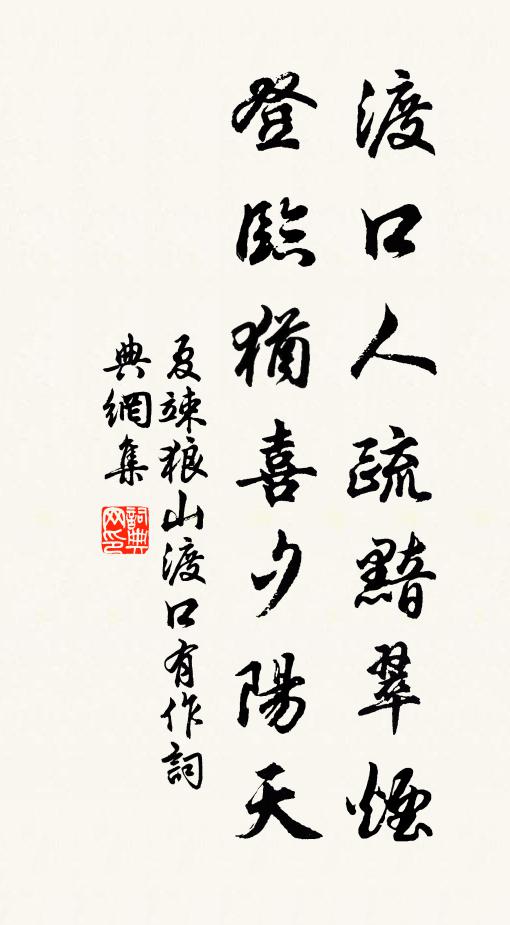 渡口人疏黯翠煙
登臨猶喜夕陽天
夏竦狼山渡口有作詞
典網集
詞典網印